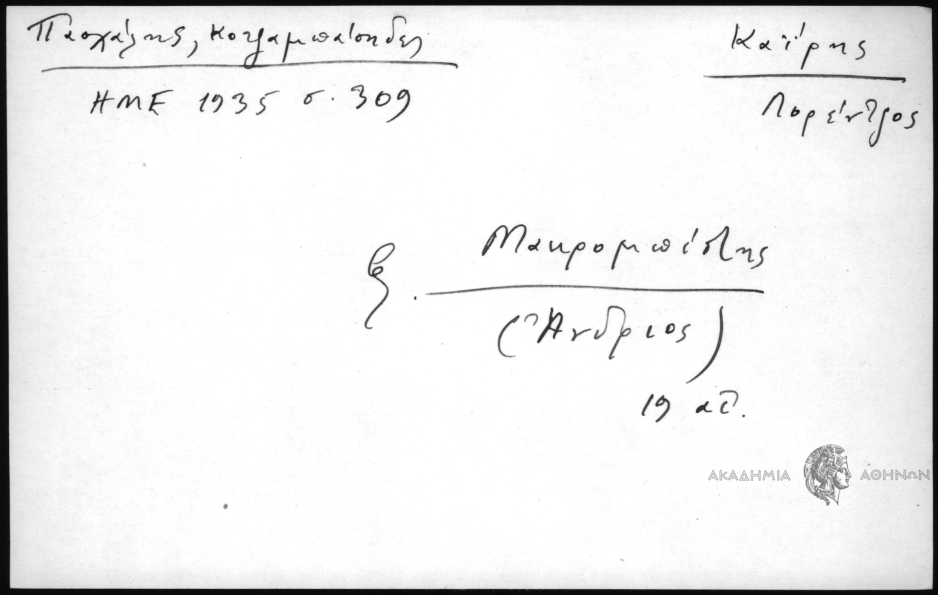 Πασχάλης, Κοτζαμπάσηδες
ΗΜΕ 1935 σ. 309
Καΐρης
Λορέντζος
ξ. Μακρομπέστης
(Ἄνδριος)
19 αἰ.
ΑΚΑΔΗΜΙΑ ΑΘΗΝΩΝ